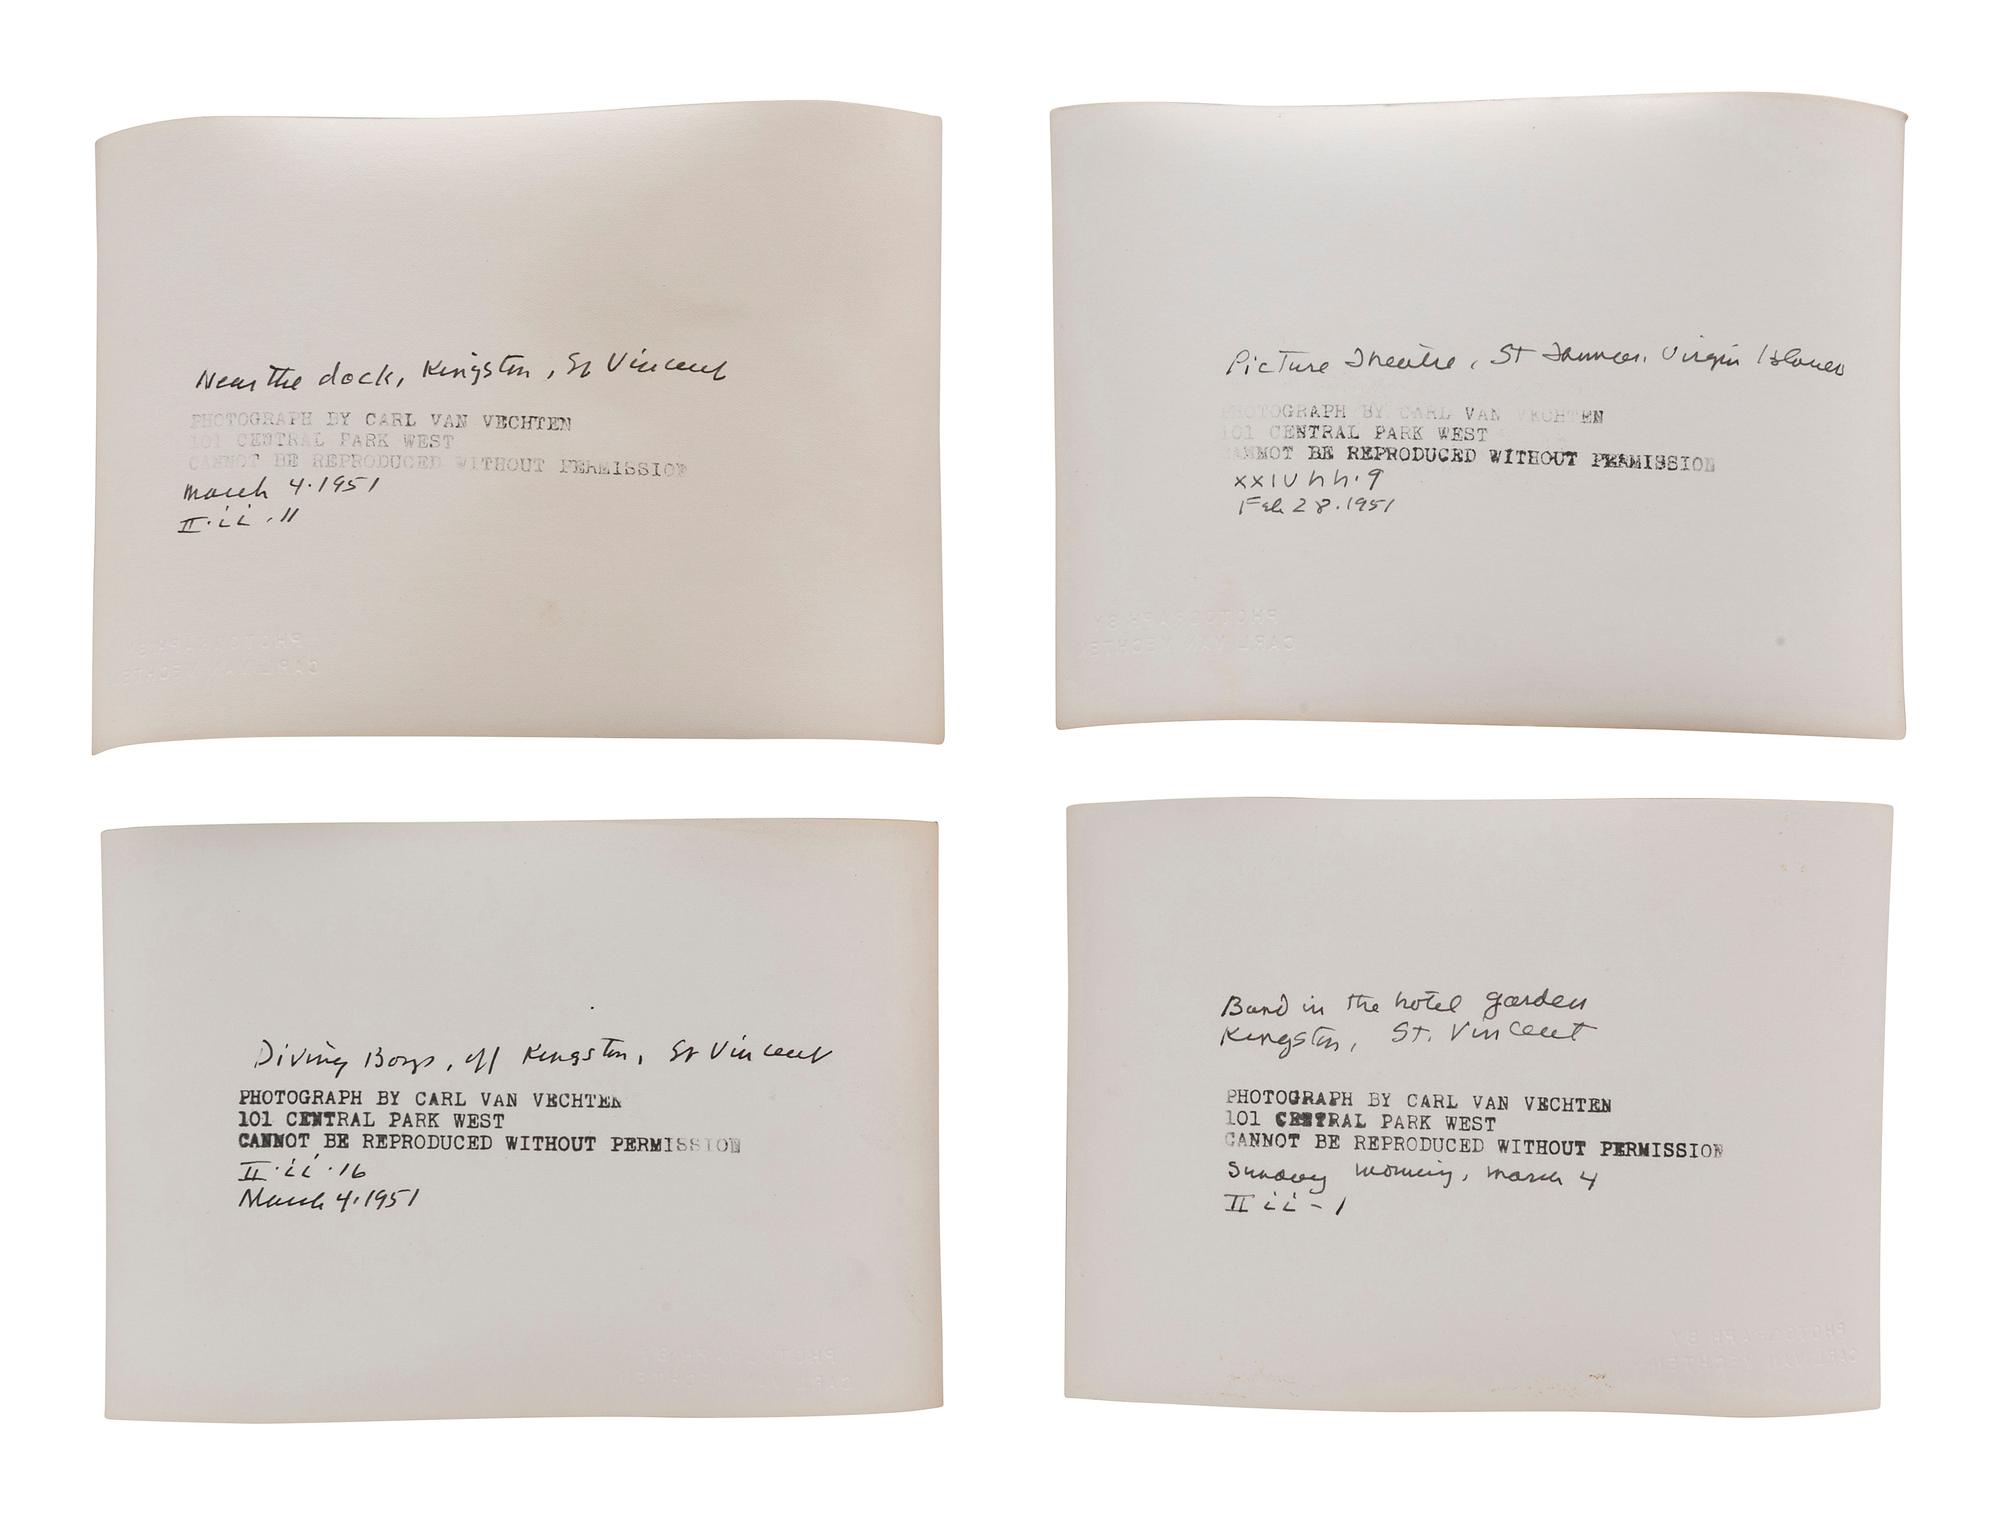 Near the dock, Kingston, St Vincent
PHOTOGRAPH BY CARL VAN VECHTEN
101 CENTRAL PARK WEST
CANNOT BE REPRODUCED WITHOUT PERMISSION
March 4.1951
II.ii.11
PHOTOGRAPH BY
CARL VAN VECHTEN
Picture Theatre, St Virgin Islands
PHOTOGRAPH BY CARL VAN VECHTEN
101 CENTRAL PARK WEST
CANNOT BE REPRODUCED WITHOUT PERMISSION
XXIV hh.9
Feb 28.1951
PHOTOGRAPH BY
CARL VAN VECHTEN
Diving Boys, off Kingston, St Vincent
PHOTOGRAPH BY CARL VAN VECHTEN
101 CENTRAL PARK WEST
CANNOT BE REPRODUCED WITHOUT PERMISSION
II.ii.16
March 4.1951
PHOTOGRAPH BY
CARL VAN VECHTEN
Band in the hotel garden
Kingston, St. Vincent
PHOTOGRAPH BY CARL VAN VECHTEN
101 CENTRAL PARK WEST
CANNOT BE REPRODUCED WITHOUT PERMISSION
Sunday morning, March 4
II ii - 1
PHOTOGRAPH BY
CARL VAN VECHTEN